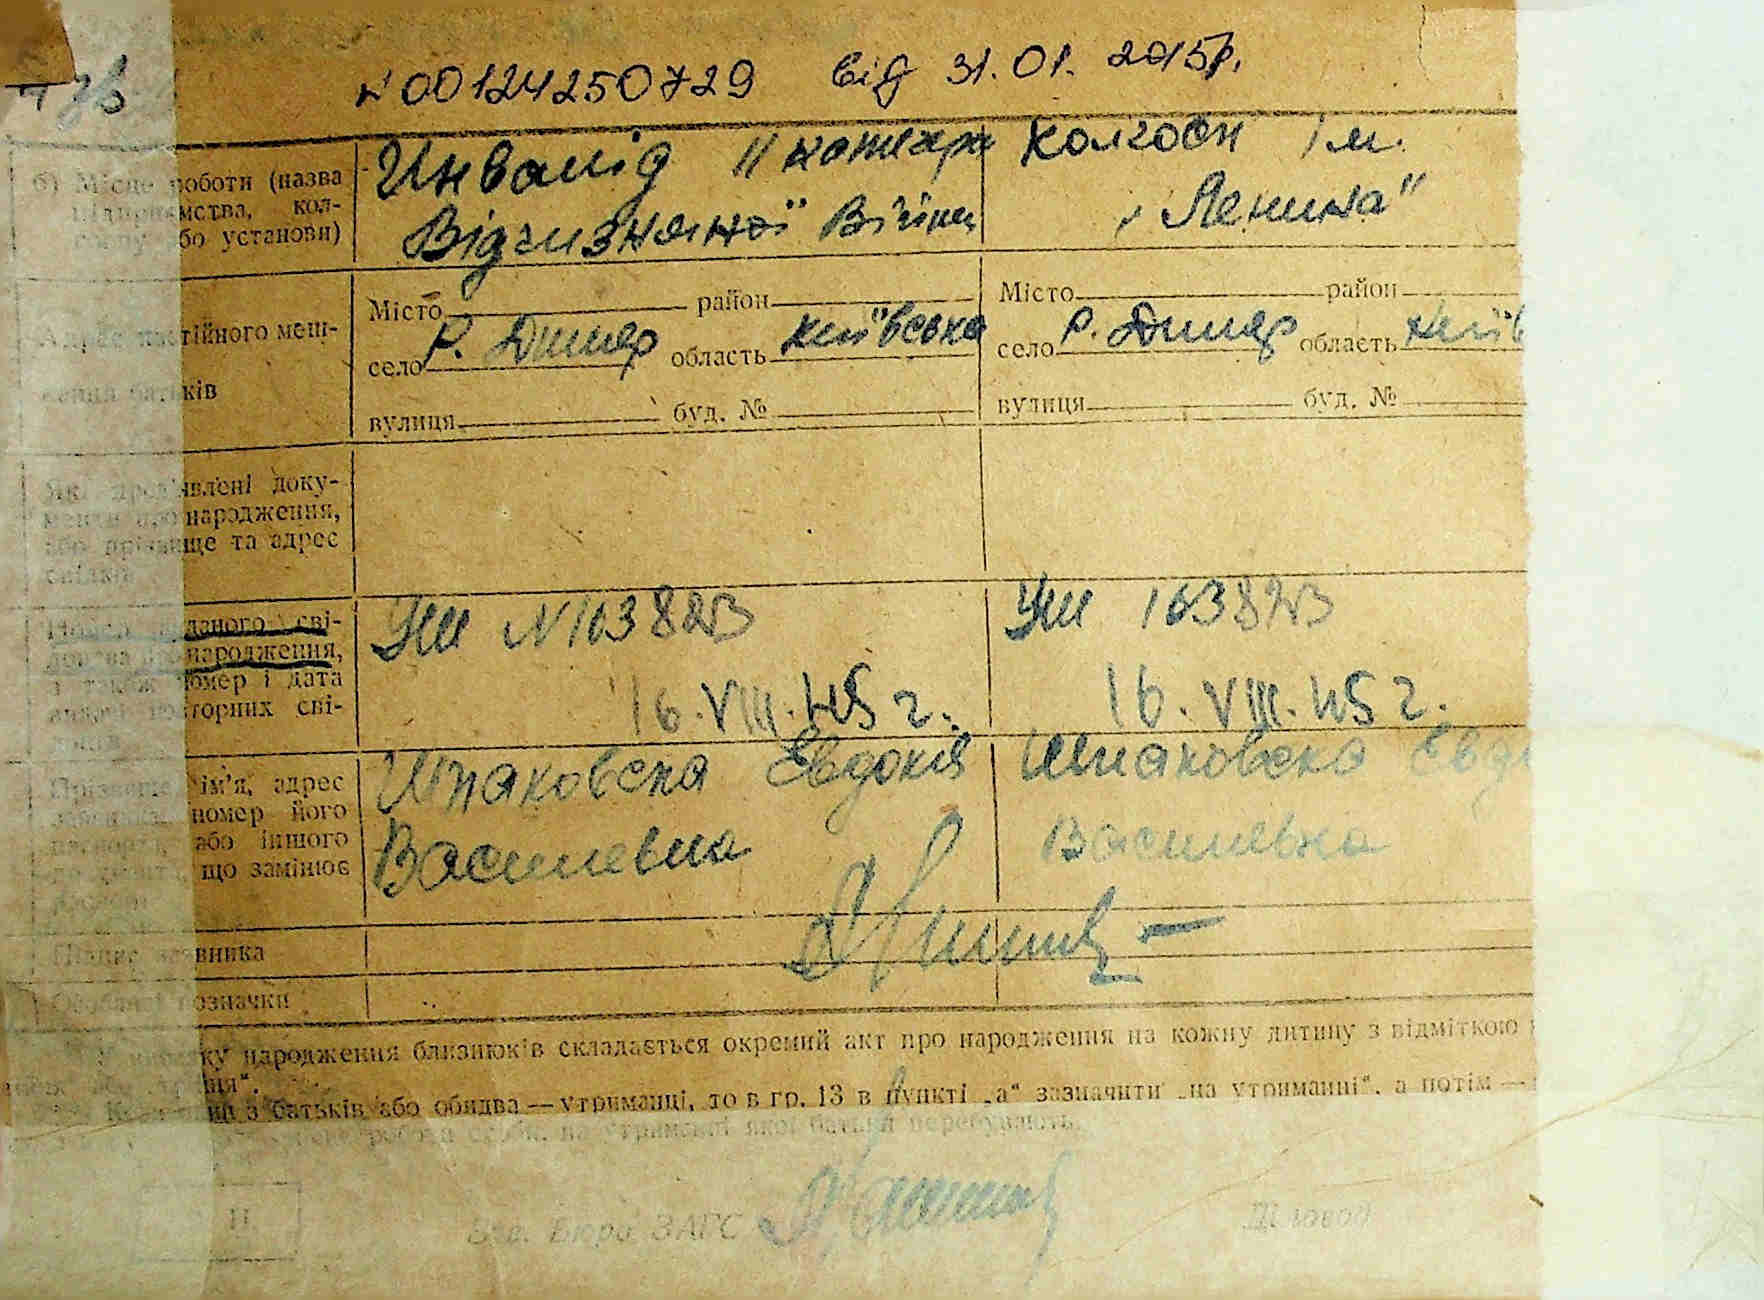 N00124250729 від 31.01.2015р.
б) Місце роботи (назва підприємства, колгоспу або установи)
Инвалід II категорі Вiдчизняної Війни
Колгосп ім. „Ленина"
Адрес постійного мешкання батьків
Місто район
село Р. Димер область Київська
вулиця буд. №
Місто район
село Р. Димер область Київ
вулиця буд. №
Які пред'явлені документи про народження, або прізвище та адрес свідків
Номер виданого свідоцтва про народження, а також номер і дата видачі повторних свідоцтв
УШ N163823
16.VIII.45 г.
УШ 163823
16.VIII.45 г.
Прізвище, ім'я, адрес заявника, номер його паспорта, або іншого документа, що замінює паспорт
Шпаковска Евдокія
Василевна
Шпаковска Евд
Василевна
Підпис заявника
Особливі позначки
у народження близнюків складається окремий акт про народження на кожну дитину з відміткою
з батьків або обидва — утриманці, то в гр. 13 в пункті „а" зазначити „на утриманні", а потім —
роботи особи, на утриманні якої батьки перебувають.
Зав. Бюро ЗАГС
Діловод